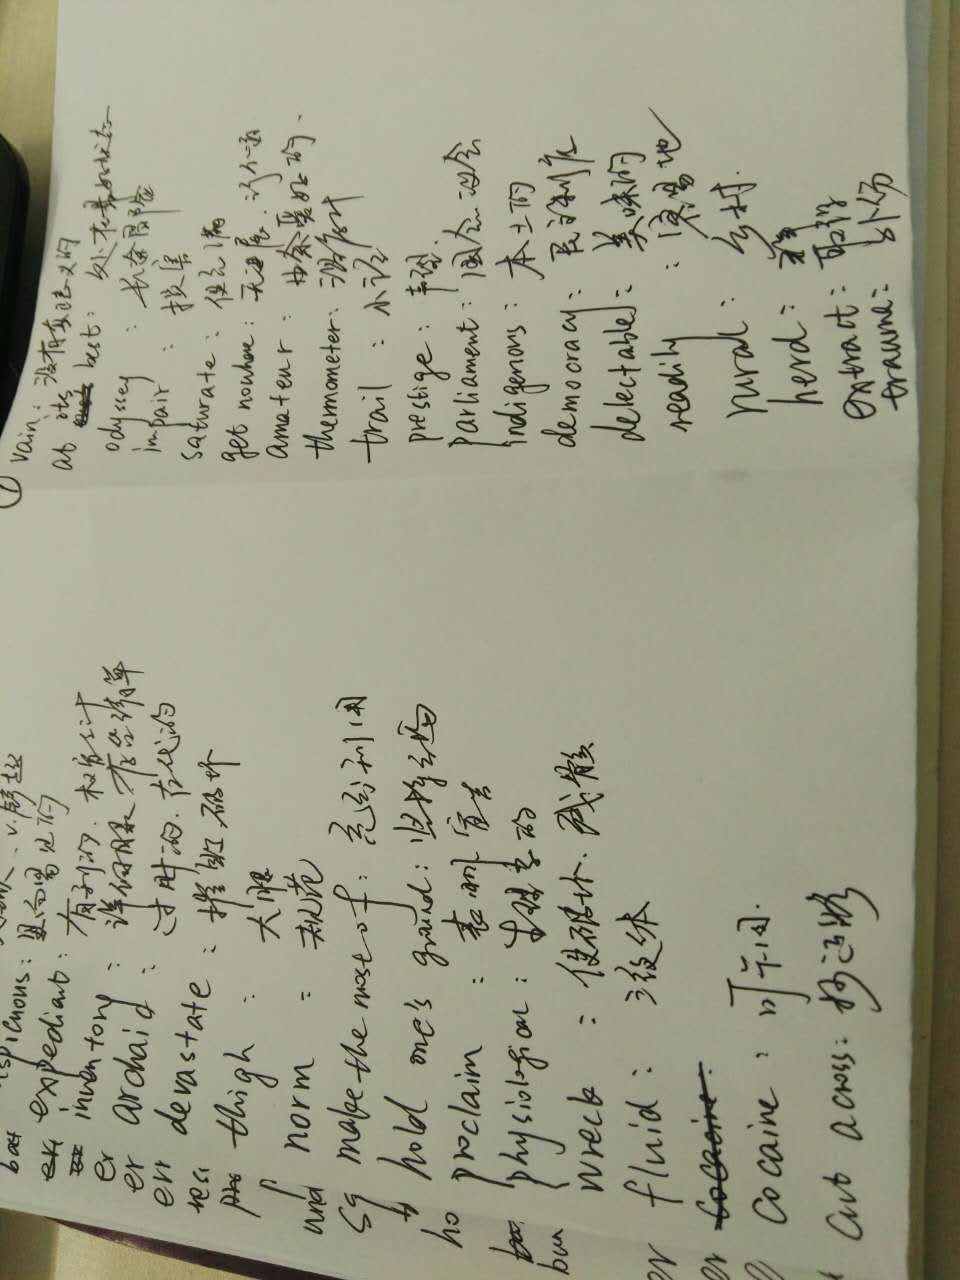 ①
vain: 没有意义的
at its best: 处在最好状态
odyssey: 长途冒险
impair: 损害
saturate: 使充满
get nowhere: 无进展
amateur: 业余爱好的.
thermometer: 温度计
trail: 小径
prestige: 声望
parliament: 国会
indigenous: 本土的
democracy: 民主制度
delectable: 美味的
readily: 容易地
rural: 乡村.
herd:
extract: 取得
trauma: 外伤
spicuous: 显而易见的
expediant: 有利的. 权宜之计
inventory: 详细目录 存货清单
archaid: 过时的. 古代的
devastate: 摧毁 破坏
thigh: 大腿
norm: 规范
make the most of: 充分利用
hold one's ground: 坚持
proclaim: 表明 宣告
physiological: 生理学的
wreck: 使破坏. 残骸
fluid: 液体
cocaine: 可卡因.
cut across: 抄近路